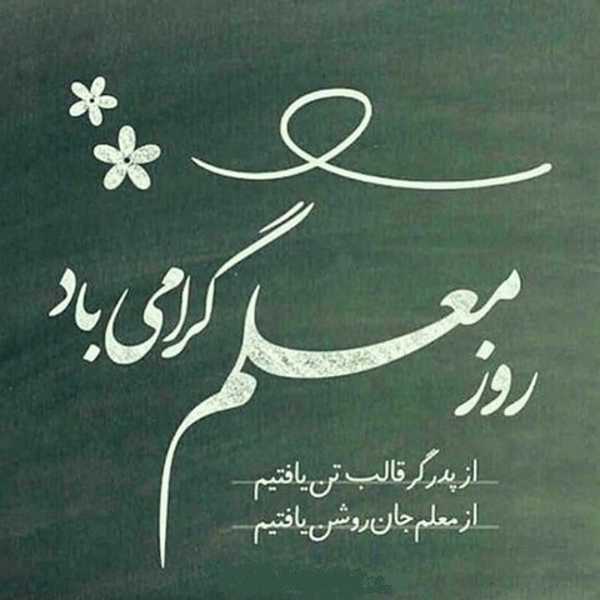 روز معلم گرامی باد
از پدر گر قالب تن یافتیم
از معلم جان روشن یافتیم